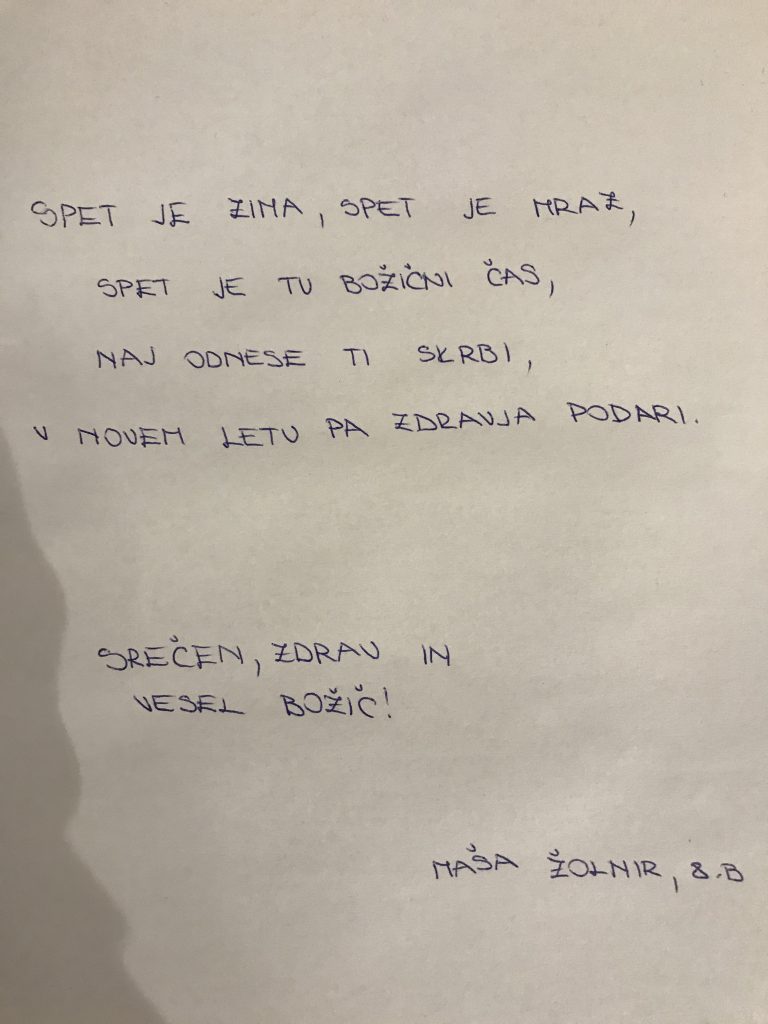 SPET JE ZIMA, SPET JE MRAZ,
SPET JE TU BOŽIČNI ČAS,
NAJ ODNESE TI SKRBI,
V NOVEM LETU PA ZDRAVJA PODARI.
SREČEN, ZDRAV IN
VESEL BOŽIČ!
MAŠA ŽOLNIR, 8.B